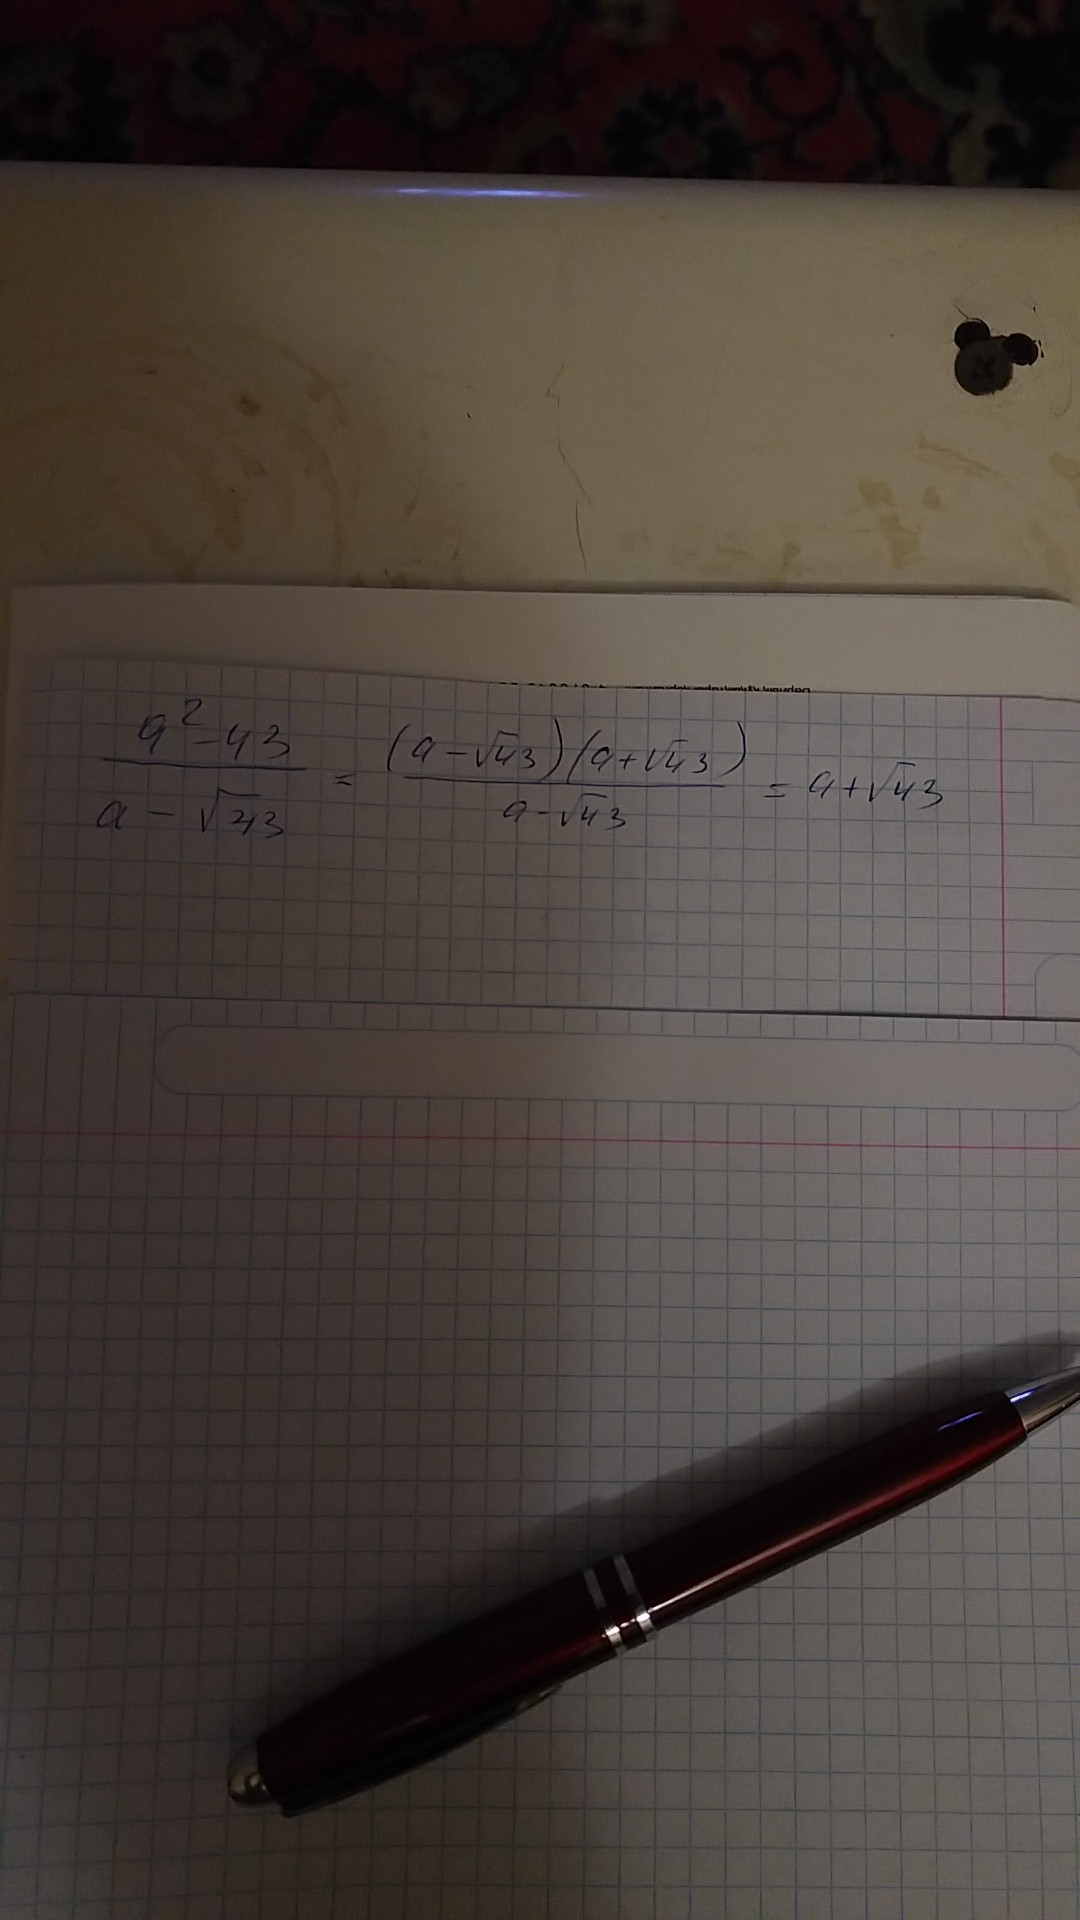 (a² - 43)/(a - √43) = ((a - √43)(a + √43))/(a - √43) = a + √43